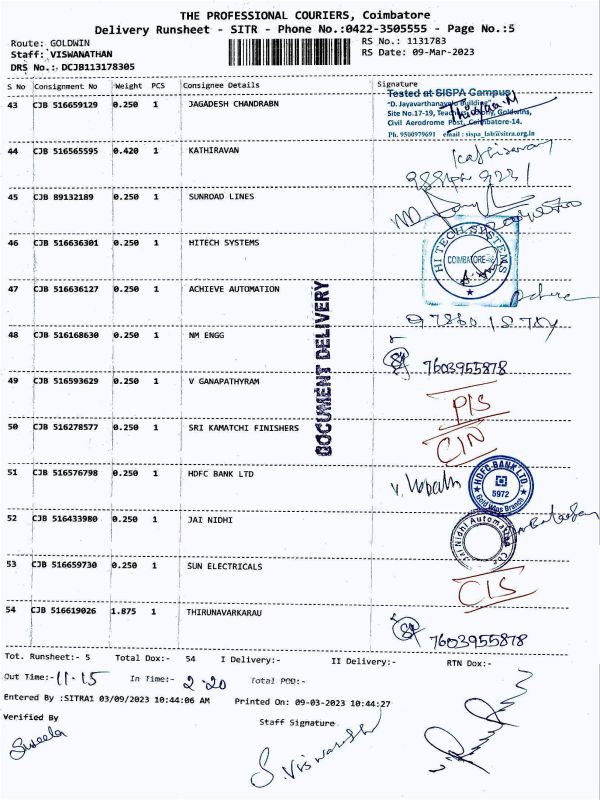 THE PROFESSIONAL COURIERS, Coimbatore
Delivery Runsheet - SITR - Phone No.:0422-3505555 - Page No.:5
Route: GOLDWIN
RS No.: 1131783
Staff: VISWANATHAN
RS Date: 09-Mar-2023
DRS No.: DCJB113178305
S No Consignment No Weight PCS Consignee Details Signature
Tested at SISPA Campus
43 CJB 516659129 0.250 1 JAGADESH CHANDRABN
Civil Aerodrome Post, Coimbatore-14.
Ph. 9500979691 email : sispa_lab@sitra.org.in
44 CJB 516565595 0.420 1 KATHIRAVAN
45 CJB 89132189 0.250 1 SUNROAD LINES
46 CJB 516636301 0.250 1 HITECH SYSTEMS
HI TECH SYSTEMS
COIMBATORE
47 CJB 516636127 0.250 1 ACHIEVE AUTOMATION
DOCUMENT DELIVERY
48 CJB 516168630 0.250 1 NM ENGG
7603955878
49 CJB 516593629 0.250 1 V GANAPATHYRAM
P/S
50 CJB 516278577 0.250 1 SRI KAMATCHI FINISHERS
C/N
51 CJB 516576798 0.250 1 HDFC BANK LTD
HDFC BANK LTD.
5972
Gold Wins Branch
52 CJB 516433980 0.250 1 JAI NIDHI
Jai Nidhi Automation Cbe
53 CJB 516659730 0.250 1 SUN ELECTRICALS
C/S
54 CJB 516619026 1.875 1 THIRUNAVARKARAU
7603955878
Tot. Runsheet:- 5 Total Dox:- 54 I Delivery:- II Delivery:- RTN Dox:-
Out Time:- 11.15 In Time:- 2.20 Total POD:-
Entered By :SITRA1 03/09/2023 10:44:06 AM Printed On: 09-03-2023 10:44:27
Verified By
Staff Signature
Suseela
S. Viswanathan